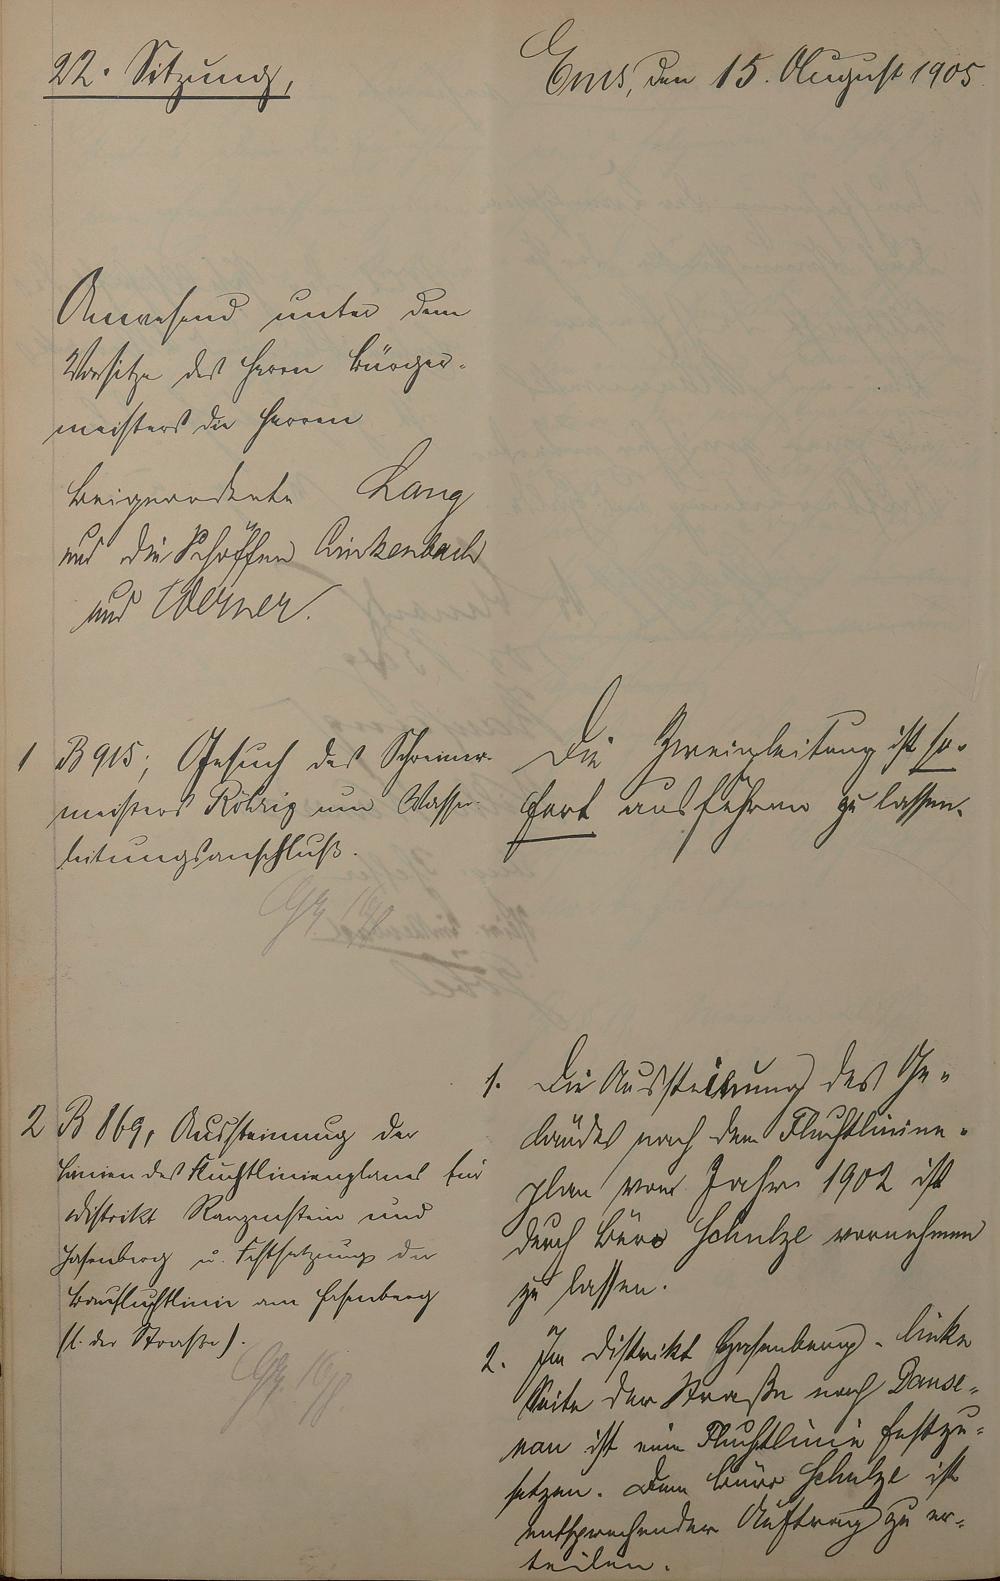 22. Sitzung,
Ems, den 15. August 1905
Anwesend unter dem
Vorsitze des Herrn Bürger-
meisters die Herren
Beigeordnete Lang
und die Schöffen Linkenbach
und Werner.
1 B 915, Gesuch des Schreiner-
meisters Röhrig um Wasser-
leitungsanschluß.
Die Zweigleitung ist so-
fort ausführen zu lassen.
2 B 869, Aussteinung der
Linien des Fluchtlinienplanes für
Distrikt und
Hasenberg u. Festsetzung der
Baufluchtlinie am Hasenberg
(l. der Straße).
1. Die Aussteinung des Ge-
ländes nach dem Fluchtlinien-
plan vom Jahre 1902 ist
durch Büro Schulze vornehmen
zu lassen.
2. Im Distrikt Hasenberg - linke
Seite der Straße nach Dause-
nau ist eine Fluchtlinie festzu-
setzen. Dem Büro Schulze ist
entsprechender Auftrag zu er-
teilen.